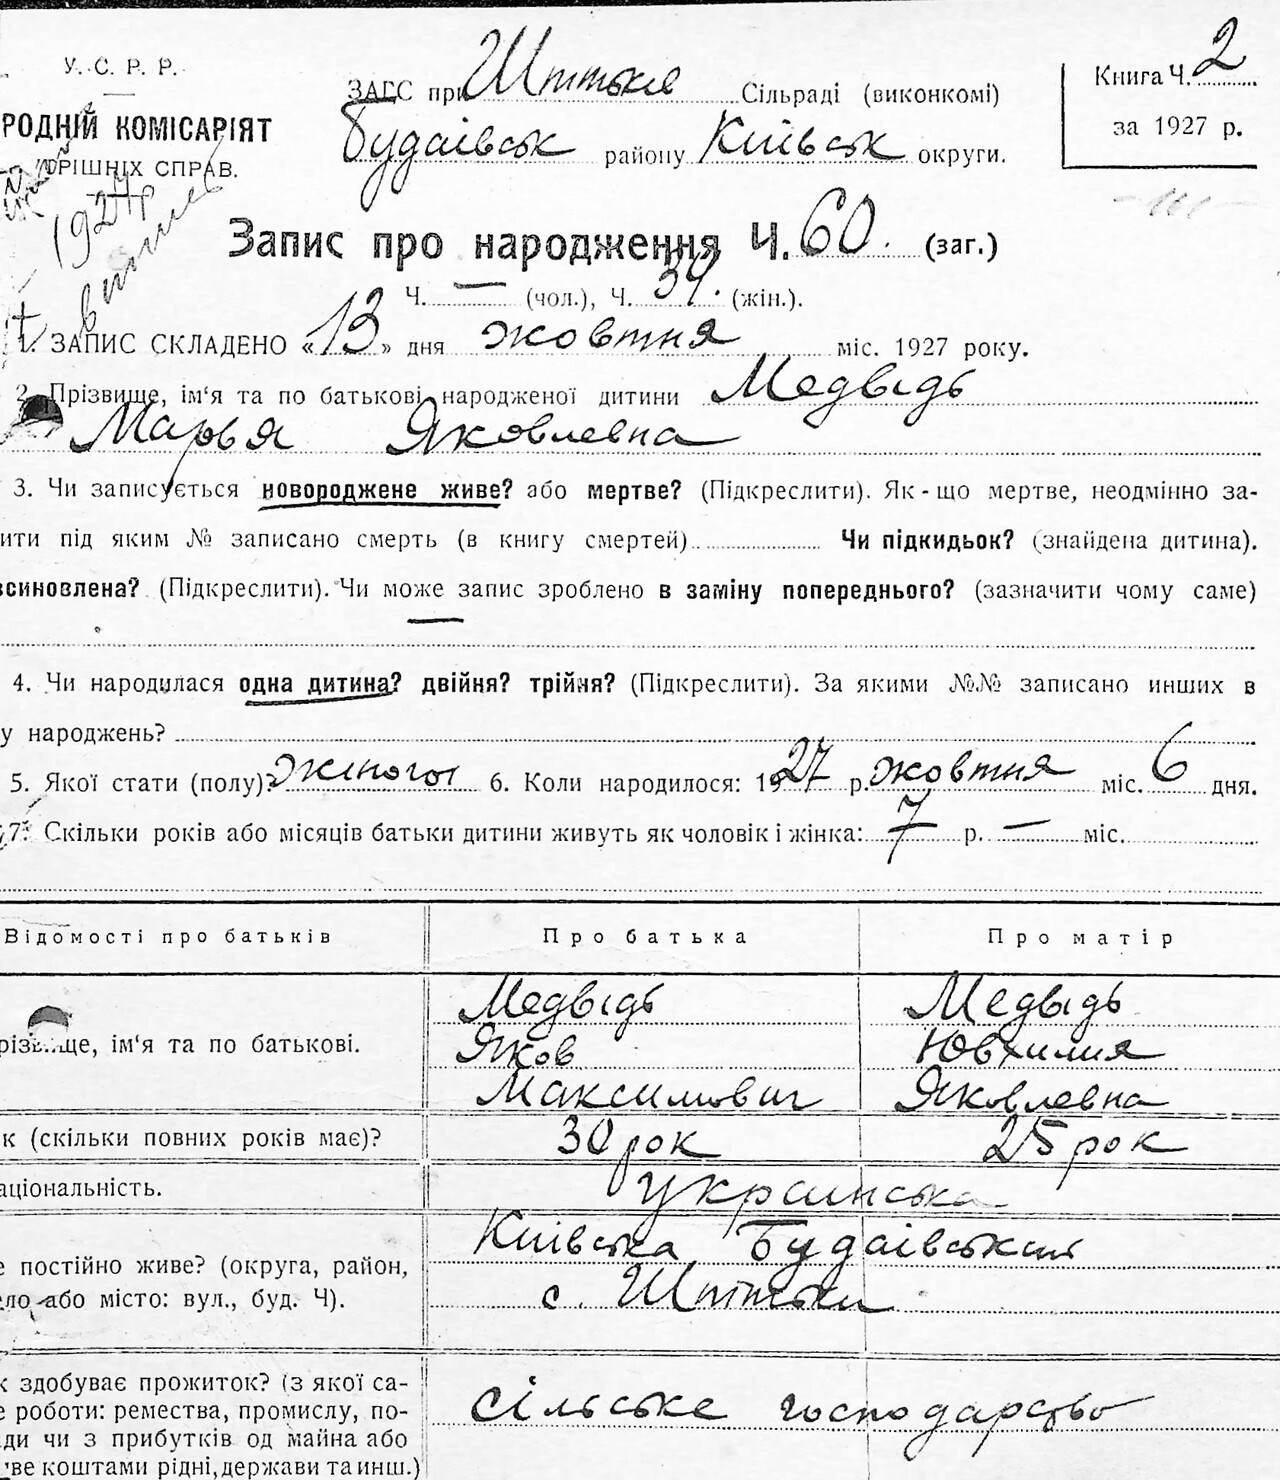 У. С. Р. Р.
РОДНІЙ КОМІСАРІЯТ
ТРІШНІХ СПРАВ.
1927 р
ЗАГС при Шпитьки Сільраді (виконкомі)
Будаївськ району Київськ округи.
Книга Ч. 2
за 1927 р.
Запис про народження Ч. 60. (заг.)
Ч. — (чол.), Ч. 34. (жін.).
1. ЗАПИС СКЛАДЕНО «13» дня жовтня міс. 1927 року.
2. Прізвище, ім'я та по батькові народженої дитини Медвідь
Марья Яковлевна
3. Чи записується новороджене живе? або мертве? (Підкреслити). Як-що мертве, неодмінно за-
ити під яким № записано смерть (в книгу смертей) Чи підкидьок? (знайдена дитина).
всиновлена? (Підкреслити). Чи може запис зроблено в заміну попереднього? (зазначити чому саме)
—
4. Чи народилася одна дитина? двійня? трійня? (Підкреслити). За якими №№ записано инших в
у народжень?
5. Якої стати (полу)? жіночої 6. Коли народилося: 1927 р. жовтня міс. 6 дня.
7. Скільки років або місяців батьки дитини живуть як чоловік і жінка: 7 р. — міс.
Відомості про батьків Про батька Про матір
Медвідь Медвідь
різвище, ім'я та по батькові. Яков Ювхимия
Максимович Яковлевна
к (скільки повних років має)? 30 рок 25 рок
аціональність. украинська
Київська Будаівськии
е постійно живе? (округа, район,
ело або місто: вул., буд. Ч). с. Шпитьки
к здобуває прожиток? (з якої са-
е роботи: ремества, промислу, по- сільське господарство
ди чи з прибутків од майна або
ве коштами рідні, держави та инш.)